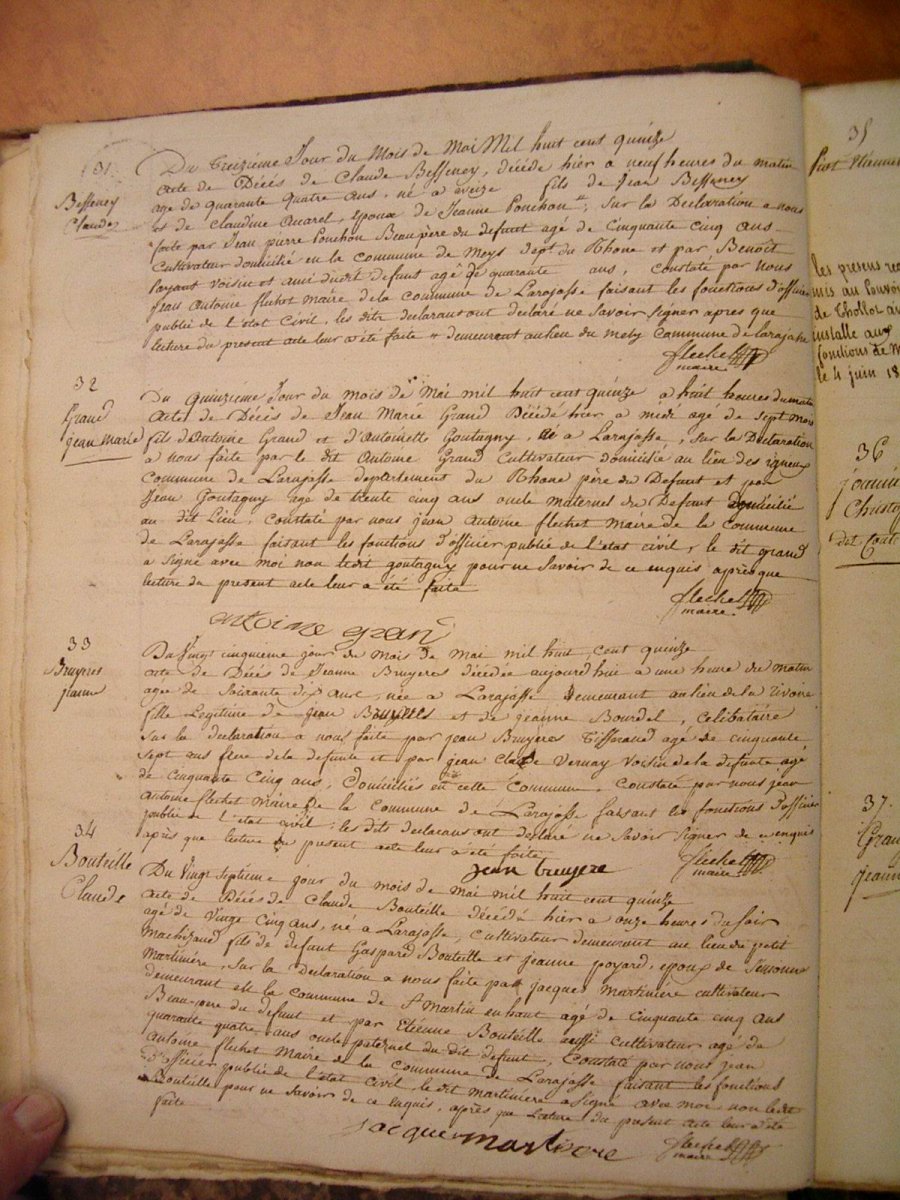 31
Besseney
Claude
Du Treizième Jour du Mois de Mai Mil huit cent quinze
Acte de Décés de Claude Besseney, décédé hier a neuf heures du matin
agé de quarante quatre ans, né a aveize fils de Jean Besseney
et de Claudine Epoux de Jeanne Ponchon, Sur la Declaration a nous
faite par Jean pierre Ponchon Beaupère du defunt agé de Cinquante Cinq ans
Cultivateur domicilié en la commune de Meys dept du Rhone et par Benoit
voisin et ami dudit defunt agé de quarante ans, Constaté par Nous
Jean Antoine flechet Maire de la commune de Larajasse faisant les fonctions d'officier
publié de l'état Civil, les dits declarans ont declaré ne Savoir Signer apres que
lecture du present acte leur a été faite demeurant au lieu du Commune de larajasse
flechet
maire
32
Grand
jean Marie
Du Quinzieme Jour du mois de Mai mil huit cent quinze a huit heures du matin
Acte de Décés de Jean Marie Grand Décédé hier a midi agé de Sept mois
fils d'Antoine Grand et d'Antoinette Goutagny, né a Larajasse, Sur la Declaration
a nous faite par le dit Antoine Grand Cultivateur domicilié au lieu des igneux
Commune de Larajasse departement du Rhone père du Defunt et par
Jean Goutagny agé de trente cinq ans oncle maternel du Defunt domicilié
au dit Lieu, Constaté par nous jean Antoine flechet Maire de la commune
de Larajasse faisant les fonctions d'officier publié de l'etat civil, le dit grand
a Signé avec moi non ledit goutagny pour ne Savoir de ce enquis après que
lecture du present acte leur a été faite
flechet
maire
antoine gran
33
Bruyeres
jeanne
Du Vingt cinquieme jour du mois de Mai mil huit cent quinze
acte de Décés de Jeanne Bruyeres décédée aujourd'hui a une heure du matin
agée de Soixante dix ans, née a Larajasse demeurant au lieu de la rivoire
fille Legitime de jean Bruyeres et de jeanne Bourdel, Celibataire
Sur la declaration a nous faite par jean Bruyeres Tisserand agé de cinquante
Sept ans frere de la defunte et par jean Claude Vernay Voisin de la defunte agé
de cinquante Cinq ans, Domiciliés en cette Commune, Constaté par nous jean
Antoine flechet Maire de la Commune de Larajasse faisant les fonctions d'officier
publié de l'etat civil; les dits declarans ont declaré ne Savoir Signer de ce enquis
après que lecture du present acte leur a été faite
jean bruyere
flechet
maire
34
Bouteille
Claude
Du Vingt Septieme jour du mois de Mai mil huit cent quinze
acte de Décés de Claude Bouteille décédé hier a onze heures du Soir
agé de Vingt Cinq ans, né a Larajasse, Cultivateur demeurant au lieu du petit
Machizaud fils de defunt Gaspard Bouteille et jeanne poyard, epoux de
Martinière, Sur la Declaration a nous faite par jacques Martinière cultivateur
demeurant en la commune de St Martin en haut agé de cinquante cinq ans
Beau-pere du defunt et par Etienne Bouteille aussi Cultivateur agé de
quarante quatre ans oncle paternel du dit defunt, Constaté par nous jean
Antoine flechet Maire de la commune de Larajasse faisant les fonctions
d'officier publié de l'état Civil, le dit martinière a Signé avec moi non ledit
Bouteille pour ne Savoir de ce enquis, après que Lecture du present acte leur a été
faite
jacque martinere
flechet
maire
35
Piot
les presens
mis au
de Thollot
installé aux
fonctions de
le 4 juin 18
36
37
jeann